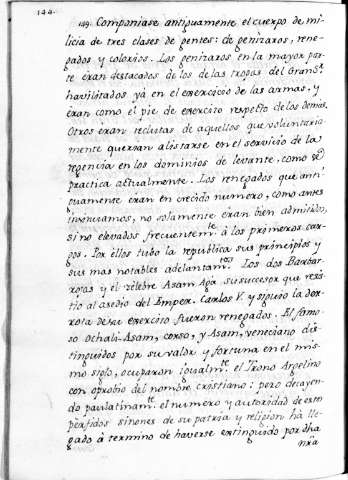 144.
189. Componiase antiguamente el cuerpo de mi-
licia de tres clases de gentes: de genizaros, rene-
gados y colorios. Los genizaros en la mayor par-
te eran destacados de los de las tropas del Gran S.r
havilitados yà en el exercicio de las armas, y
eran como el pie de exercito respecto de los demas.
Otros eran reclutas de aquellos que voluntaria-
mente querian alistarse en el servicio de la
regencia en los dominios de levante, como se
practica actualmente. Los renegados que anti-
guamente eran en crecido numero, como antes
insinuamos, no solamente eran bien admitidos,
si no elevados frecuentem.te à los primeros car-
gos. Por ellos tubo la republica sus principios y
sus mas notables adelantam.tos. Los dos Barbar-
rojas y el celebre Asam Aga su succesor que resis-
tio al asedio del Emper. Carlos V. y siguio la der-
rota de su exercito fueron renegados. El famo-
so Ochali-Asam, corso, y Asam, veneciano dis-
tinguidos por su valor y fortuna en el mis-
mo siglo, ocuparon igualm.te el Trono Argelino
con oprobio del nombre cristiano: pero decayen-
do paulatinam.te el numero y autoridad de estos
perfidos sinones de su patria y religion hà lle-
gado à termino de haverse extinguido por dha
mra